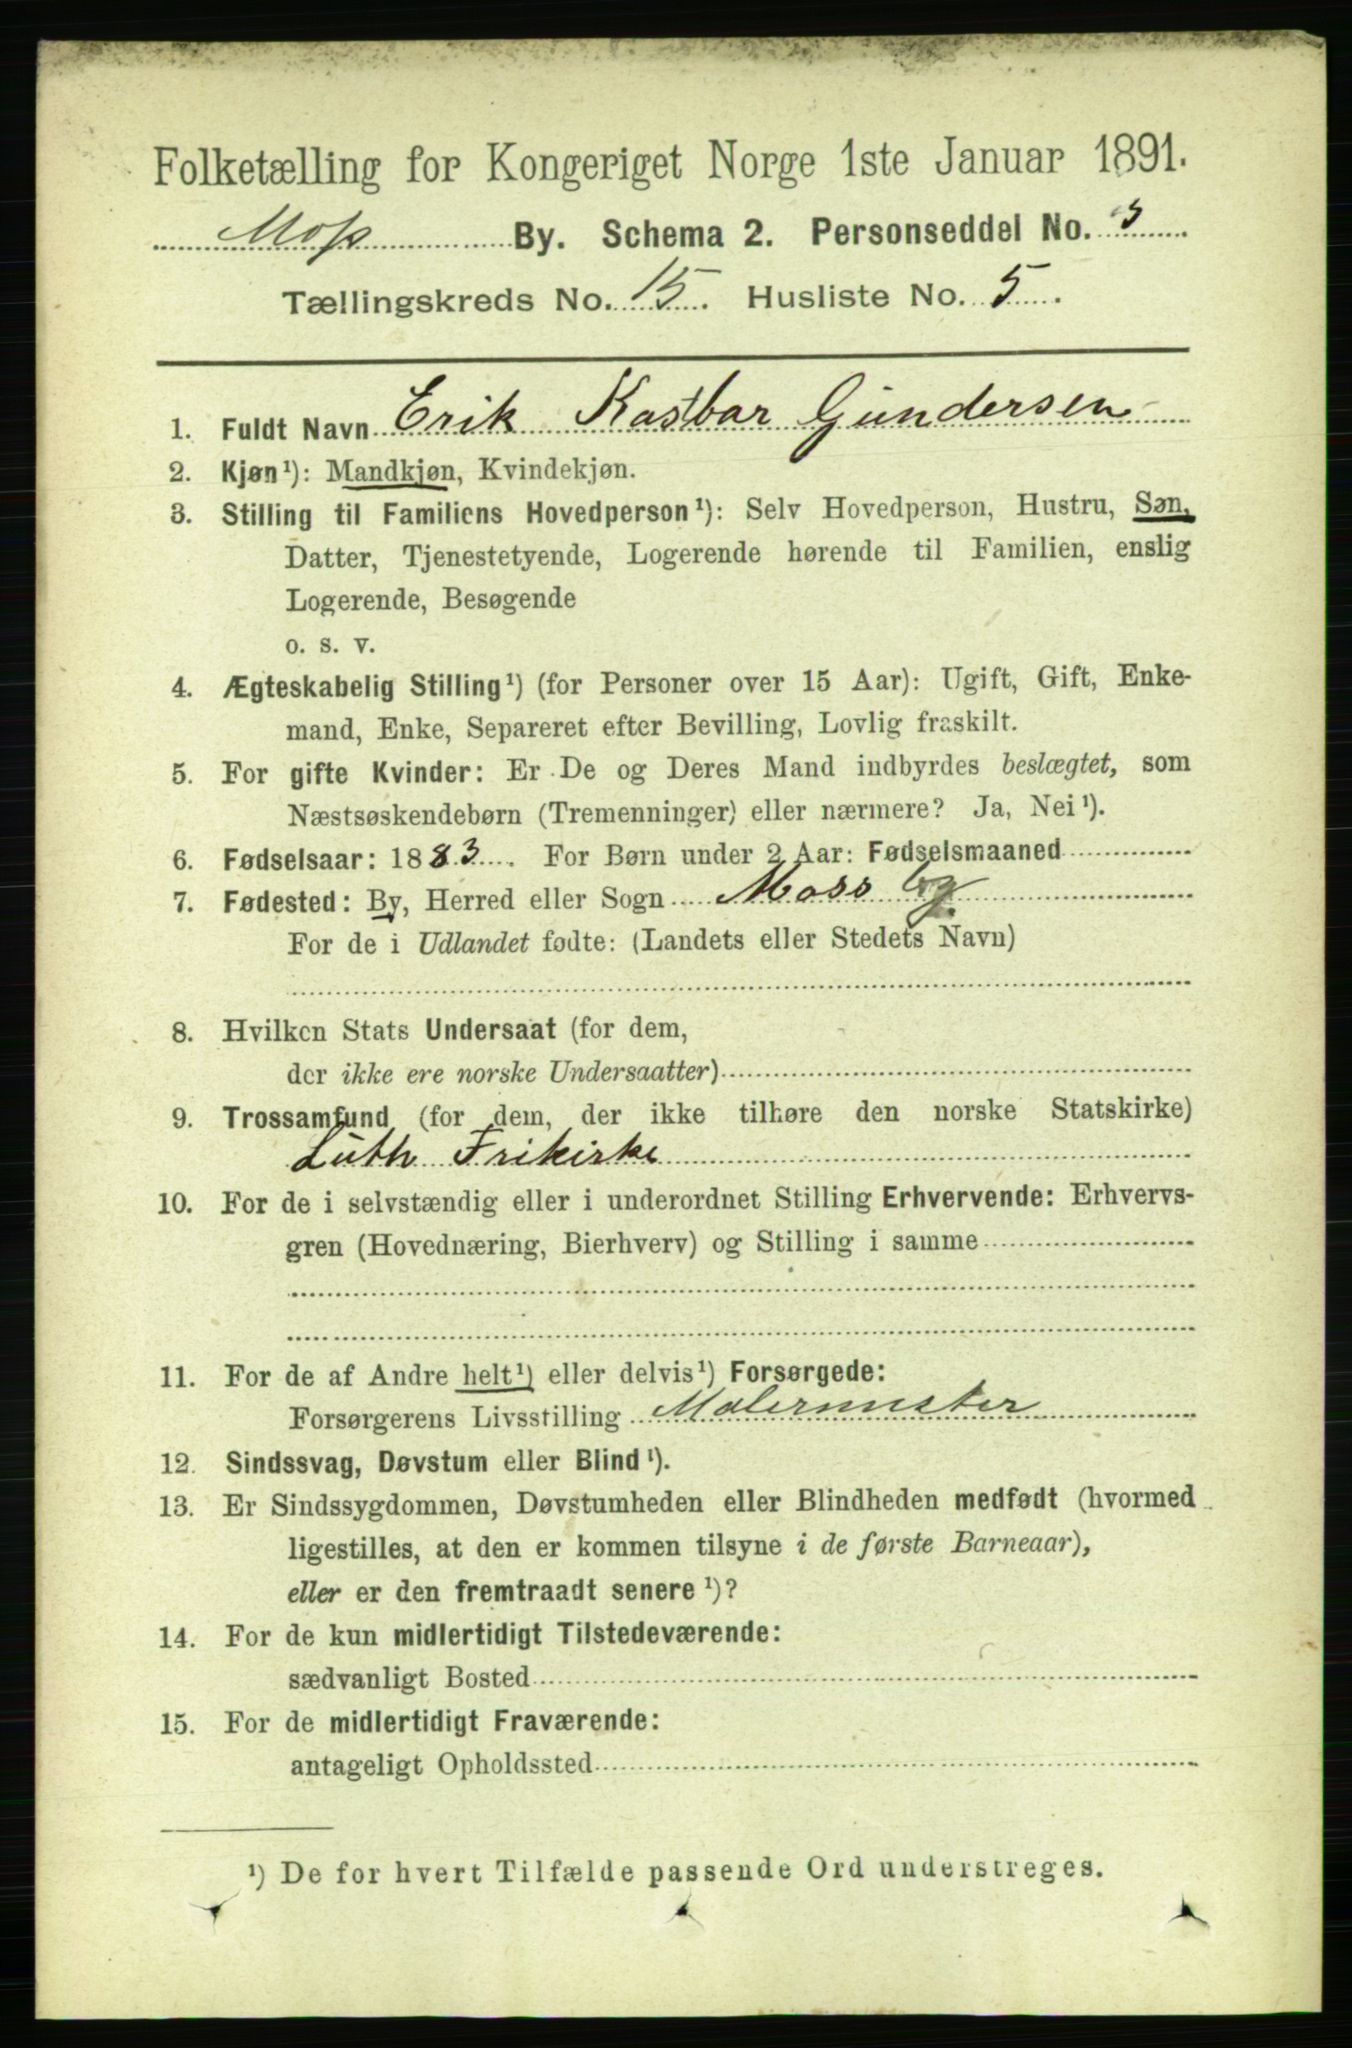 Folketælling for Kongeriget Norge 1ste Januar 1891.
Moss By. Schema 2. Personseddel No. 3
Tællingskreds No. 15. Husliste No. 5.
1. Fuldt Navn Erik Kasbar Gundersen
2. Kjøn¹): Mandkjøn, Kvindekjøn.
3. Stilling til Familiens Hovedperson¹): Selv Hovedperson, Hustru, Søn,
Datter, Tjenestetyende, Logerende hørende til Familien, enslig
Logerende, Besøgende
o. s. v.
4. Ægteskabelig Stilling¹) (for Personer over 15 Aar): Ugift, Gift, Enke-
mand, Enke, Separeret efter Bevilling, Lovlig fraskilt.
5. For gifte Kvinder: Er De og Deres Mand indbyrdes beslægtet, som
Næstsøskendebørn (Tremenninger) eller nærmere? Ja, Nei¹).
6. Fødselsaar: 1883. For Børn under 2 Aar: Fødselsmaaned
7. Fødested: By, Herred eller Sogn Moss by
For de i Udlandet fødte: (Landets eller Stedets Navn)
8. Hvilken Stats Undersaat (for dem,
der ikke ere norske Undersaatter)
9. Trossamfund (for dem, der ikke tilhøre den norske Statskirke)
Luth Frikirke
10. For de i selvstændig eller i underordnet Stilling Erhvervende: Erhvervs-
gren (Hovednæring, Bierhverv) og Stilling i samme
11. For de af Andre helt¹) eller delvis¹) Forsørgede:
Forsørgerens Livsstilling Malermester
12. Sindssvag, Døvstum eller Blind¹).
13. Er Sindssygdommen, Døvstumheden eller Blindheden medfødt (hvormed
ligestilles, at den er kommen tilsyne i de første Barneaar),
eller er den fremtraadt senere¹)?
14. For de kun midlertidigt Tilstedeværende:
sædvanligt Bosted
15. For de midlertidigt Fraværende:
antageligt Opholdssted
¹) De for hvert Tilfælde passende Ord understreges.